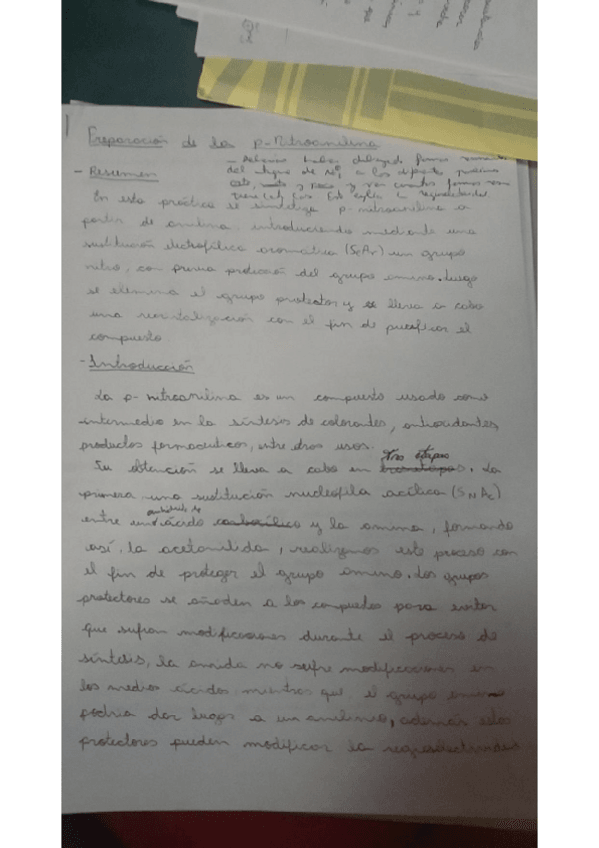 Preparación de la p-Nitroanilina
- Resumen
En esta práctica se sintetiza p-nitroanilina a
partir de anilina, introduciendo mediante una
sustitución electrofílica aromática (SEAr) un grupo
nitro, con previa protección del grupo amino. Luego
se elimina el grupo protector y se lleva a cabo
una recristalización con el fin de purificar el
compuesto.
- Introducción
La p-nitroanilina es un compuesto usado como
intermedio en la síntesis de colorantes, antioxidantes,
productos farmaceúticos, entre otros usos.
tres etapas
Su obtención se lleva a cabo en . La
primera una sustitución nucleófila acílica (SNAc)
entre un ácido carboxílico y la amina, formando
así, la acetanilida, realizamos este proceso con
el fin de proteger el grupo amino. Los grupos
protectores se añaden a los compuestos para evitar
que sufran modificaciones durante el proceso de
síntesis, la amida no sufre modificaciones en
los medios ácidos mientras que el grupo amino
podría dar lugar a un anilinio, además estos
protectores pueden modificar la regioselectividad